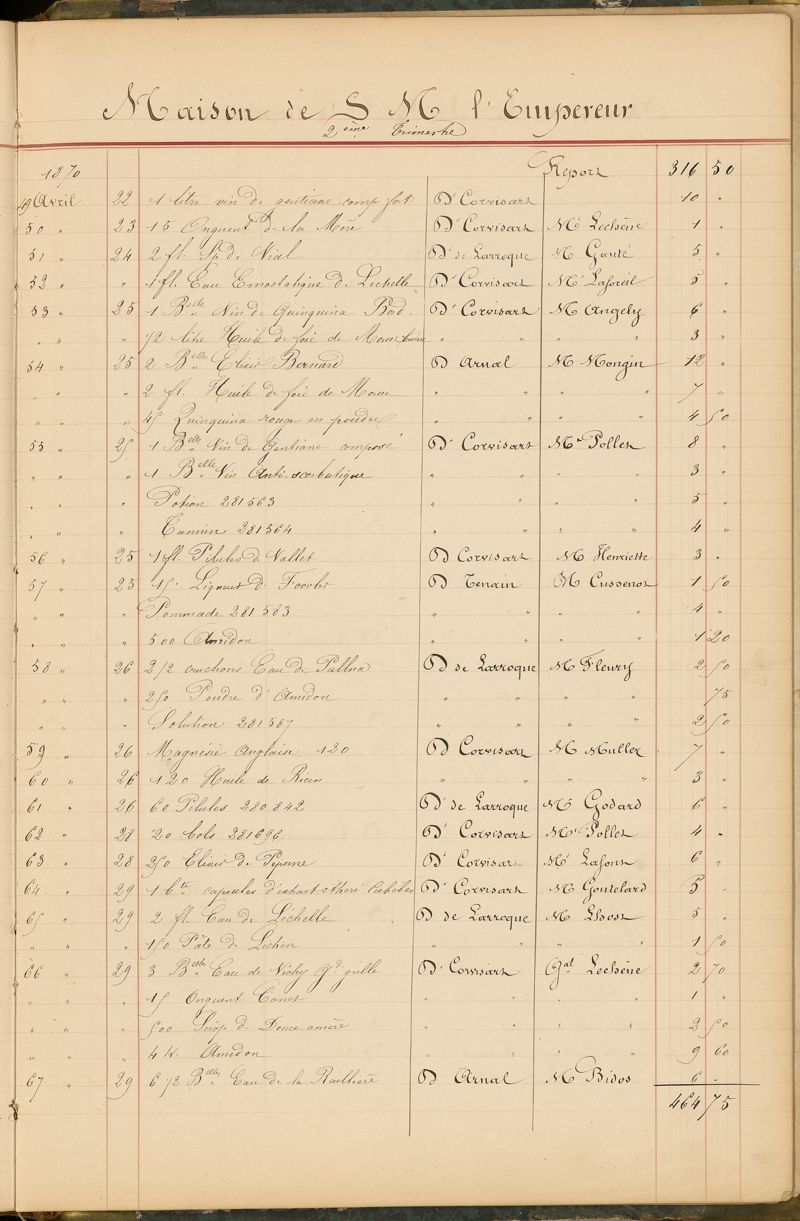 Maison de S M l'Empereur
2ème Trimestre
1870 Report 316 50
49 Avril 22 1 litre vin de gentiane comp. fort Dr Corvisart 10 "
50 " 23 15 Onguent de la Mère Dr Corvisart Mr Lechêne 1 "
51 " 24 2 fl. Sp. de Vial Dr de Larroque M Ganté 5 "
52 " " 1 fl. Eau Emostatique de Lechelle Dr Corvisart Mr Laforêil 5 "
53 " 25 1 Blle Vin de Quinquina Bord. Dr Corvisart M Angely 6 "
" " " 1/2 litre Huile de foie de Morue brune " " " " 3 "
54 " 25 2 Blles Elixir Bernard D Arnal M Mongin 12 "
" " " 2 fl. Huile de foie de Morue " " " " 7 "
" " " 45 Quinquina rouge en poudre " " " " 4 50
55 " 25 1 Blle Vin de Gentiane composé Dr Corvisart Mr Pollet 8 "
" " " 1 Blle Vin Anti-scorbutique " " " " 3 "
" " " Potion 281563 " " " " 5 "
" " " Tannin 281564 " " " " 4 "
56 " 25 1 fl. Pilules de Vallet D Corvisart M Henriette 3 "
57 " 25 15 Liqueur de Fowler D Tenain M Cussenot 1 50
" " " Pommade 281583 " " " " 4 "
" " " 500 Amidon " " " " 1 20
58 " 26 2 1/2 cruchons Eau de Pullna D de Larroque M Fleury 2 50
" " " 250 Poudre d'Amidon " " " " 75
" " " Solution 281587 " " " " 2 50
59 " 26 Magnésie Anglaise 120 D Corvisart M Muller 7 "
60 " 26 120 Huile de Ricin " " " " 3 "
61 " 26 60 Pilules 280842 Dr de Larroque Mr Godard 6 "
62 " 28 20 bols 281696 Dr Corvisart Mr Pollet 4 "
63 " 28 250 Elixir de Pepsine Dr Corvisart Mr Lafont 6 "
64 " 29 1 bte capsules d'extrait éthéré Cubebes Dr Corvisart M Goutelard 5 "
65 " 29 2 fl. Eau de Léchelle D de Larroque M Lhost 5 "
" " " 150 Pâte de Lichen " " " " 1 50
66 " 29 3 Blles Eau de Vichy Gde grille Dr Corvisart Gal Lechêne 2 70
" " " 15 Onguent Canet " " " " 1 "
" " " 500 Sirop de Douce amère " " " " 2 50
" " " 4 K. Amidon " " " " 9 60
67 " 29 6 1/2 Blles Eau de la Raillière D Arnal M Bidos 6 "
464 75